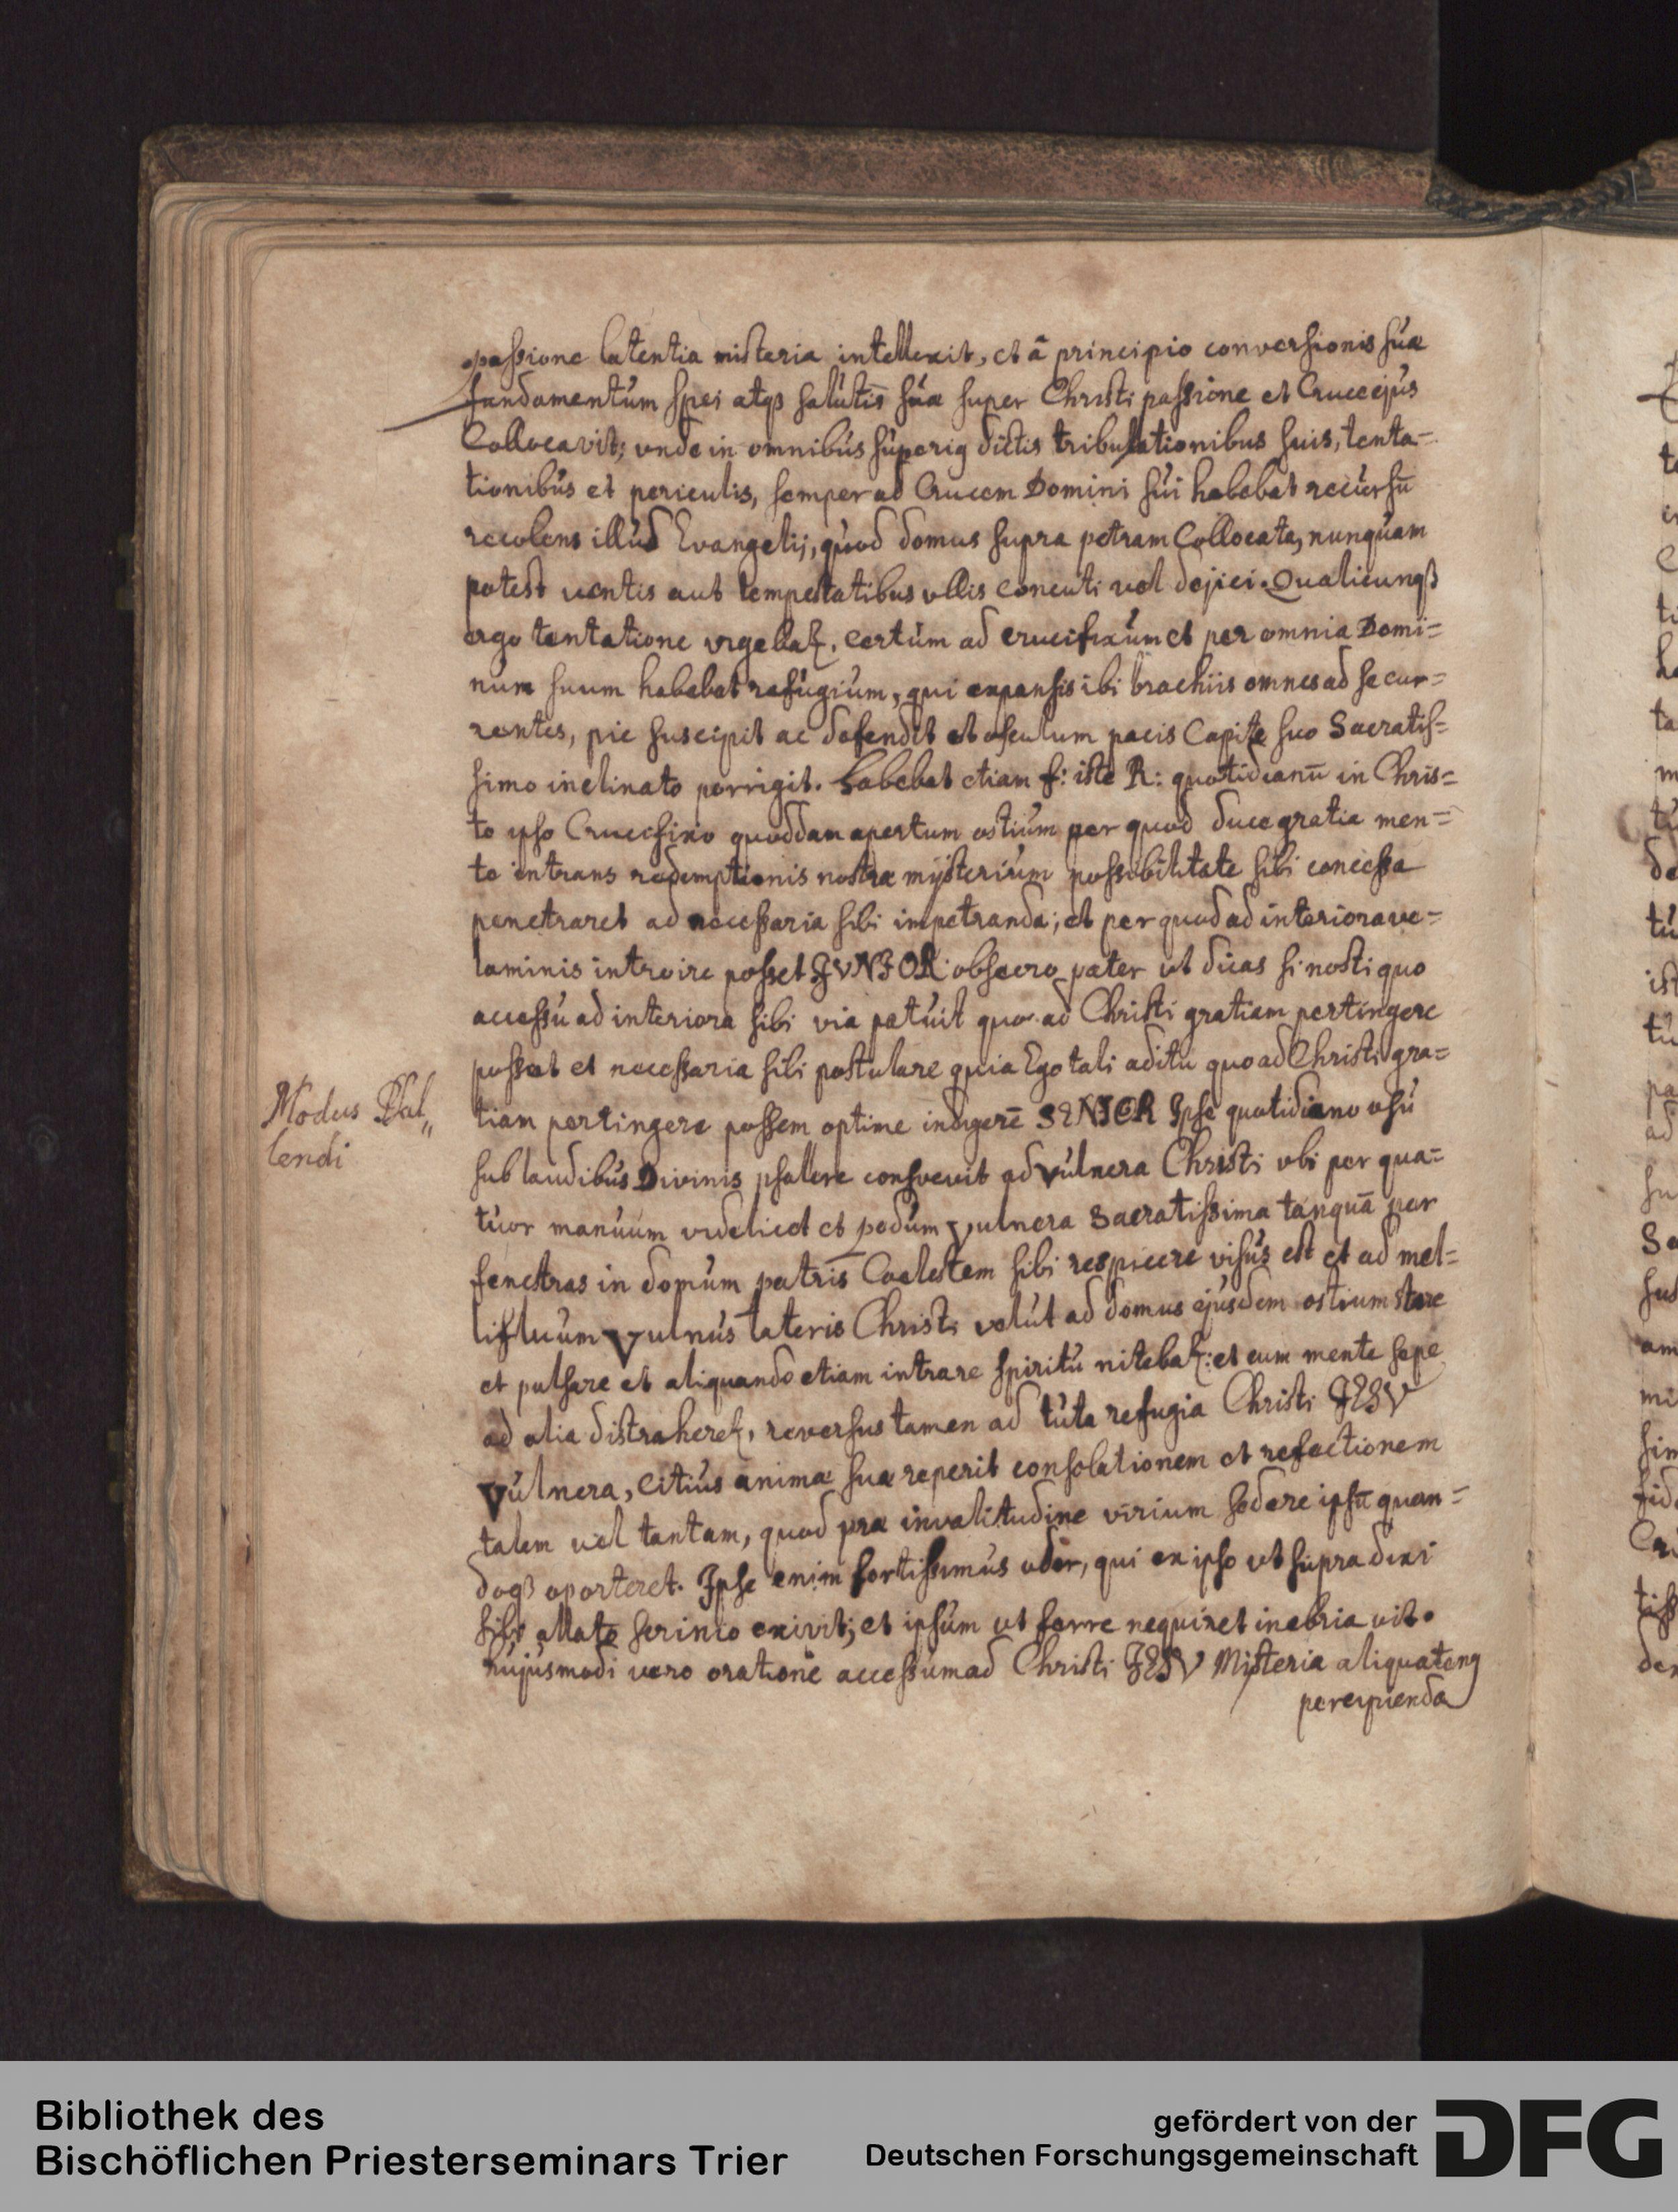 passione latentia misteria intellexit, et â principio conversionis suæ
fundamentum spei atqꝫ salutis suæ super Christi passione et Cruce ejus
Collocavit; vnde in omnibus superiꝰ dictis tribulationibus suis, tenta=
tionibus et periculis, semper ad Crucem Domini sui habebat recursū
recolens illud Evangelij, quod domus supra petram Collocata, nunquam
potest ventis aut tempestatibus vllis concuti vel dejici. Qualicunqꝫ
ergo tentatione vrgebaꝶ, certum ad crucifixum et per omnia Domi=
num suum habebat refugium, qui expansis ibi brachiis omnes ad se cur=
rentes, pie suscipit ac defendit et osculum pacis Capite suo Sacratis=
simo inclinato porrigit. habebat etiam f: iste R: quotidianū in Chris=
to ipso Crucifixo quoddam apertum ostium per quod duce gratia men=
te intrans redemptionis nostræ mysterium possibilitate sibi concessa
penetraret ad necessaria sibi impetranda; et per quod ad interiora ve=
laminis introire posset JVNJOR obsecro pater ut dicas si nosti quo
accessu ad interiora sibi via patuit quo ad Christi gratiam pertingere
posset et necessaria sibi postulare quia Ego tali aditu quo ad Christi gra=
tiam pertingere possem optime indigerē SENJOR Jpse quotidiano vsu
sub laudibus Divinis psallere consvevit ad vulnera Christi vbi per qua=
tuor manuum videlicet et pedum vulnera Sacratissima tanquā per
fenestras in domum patris Coelestem sibi respicere visus est et ad mel=
lifluum Vulnus lateris Christi velut ad domus ejusdem ostium stare
et pulsare et aliquando etiam intrare spiritu nitebaꝶ: et cum mente sepe
ad alia distrahereꝶ, reversus tamen ad tuta refugia Christi JESV
Vulnera, citius animæ suæ reperit consolationem et refectionem
talem vel tantam, quod præ invalitudine virium sedere ipsū quan=
doqꝫ oporteret. Jpse enim fortissimus odor, qui ex ipso vt supra dixi
sibi allato scrinio exivit; et ipsum ut ferre nequiret inebriavit.
hujusmodi vero oratione accessum ad Christi JESV Misteria aliquatenꝰ
percipienda
Modus Psal„
lendi
Bibliothek des
Bischöflichen Priesterseminars Trier
gefördert von der
Deutschen Forschungsgemeinschaft
DFG